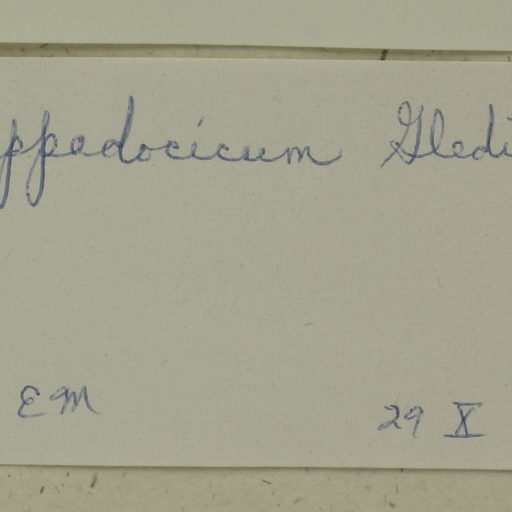 ppadocicum Gledi
EM 29 X